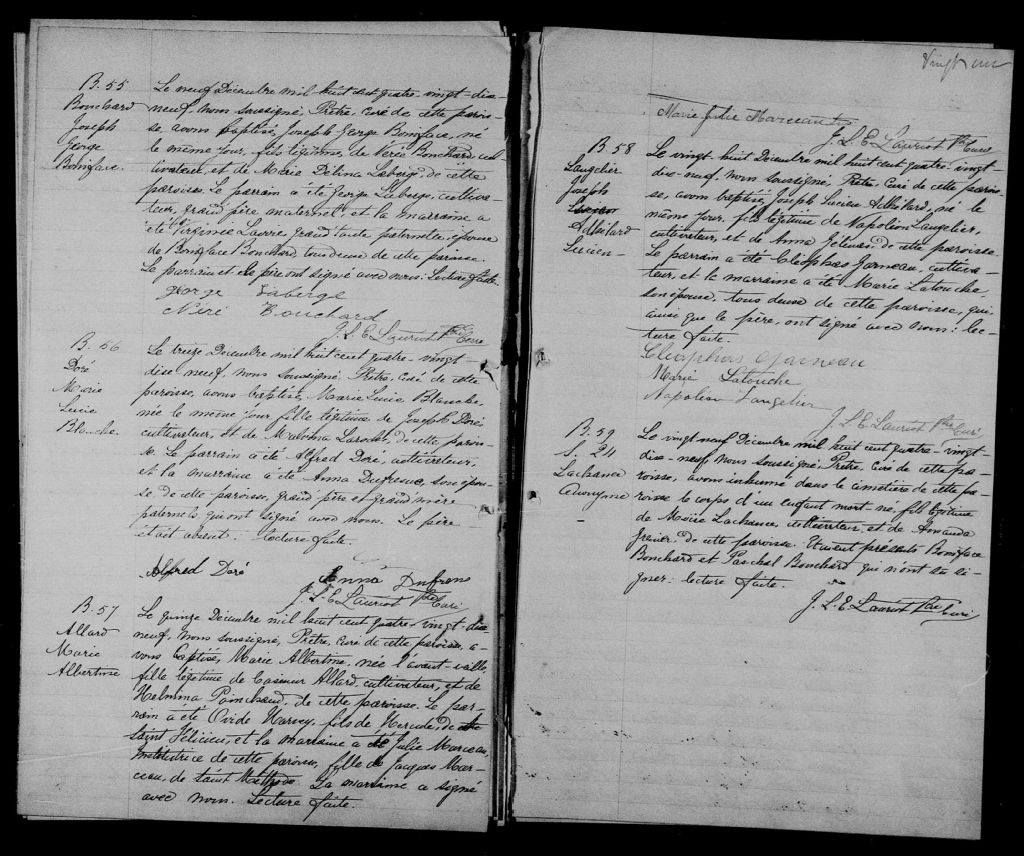 B. 55
Bouchard
Joseph
George
Boniface.
Le neuf Décembre mil huit cent quatre-vingt-dix-
neuf, nous soussigné, Prêtre, curé de cette parois-
se, avons baptisé, Joseph George Boniface, né
le même jour, fils légitime, de Nérée Bouchard, cul-
tivateur, et de Marie Délina Laberge, de cette
paroisse. Le parrain a été George Laberge, cultiva-
teur, grand père maternel, et la marraine a
été Virginie Lavoie, grand'tante paternelle, épouse
de Boniface Bouchard tous deux de cette paroisse.
Le parrain et le père ont signé avec nous. Lecture faite.
George Laberge
Néré Bouchard
J. L. E. Lauriot Ptre Curé
B. 56
Doré
Marie
Lucie
Blanche.
Le treize Décembre mil huit cent quatre-vingt-
dix-neuf, nous soussigné Prêtre, curé de cette
paroisse, avons baptisé, Marie Lucie Blanche
née le même jour fille légitime de Joseph Doré
cultivateur, et de Malvina de cette parois-
se. Le parrain a été Alfred Doré, cultivateur,
et la marraine a été Anna Dufresne, son épou-
se, de cette paroisse, grand père et grand mère
paternels, qui ont signé avec nous. Le père
était absent: lecture faite.
Alfred Doré Anna Dufrens
J. L. E. Lauriot Ptre Curé
B. 57
Allard
Marie
Albertine
Le quinze Décembre mil huit cent quatre-vingt-dix-
neuf, nous soussigné, Prêtre, curé de cette paroisse, a-
vons baptisé, Marie Albertine, née l'avant-veille
fille légitime de Casimir Allard, cultivateur, et de
de cette paroisse. Le par-
rain a été Ovide Harvey, fils de Hercule, de
Saint Félicien, et la marraine a été Julie Marceau,
Institutrice de cette paroisse, fille de Jacques Mar-
ceau, de Saint La marraine a signé
avec nous. Lecture faite.
Vingt un
Marie Julie Marceau
J. L. E. Lauriot Ptre Curé
B. 58
Langelier
Joseph
Adhilard
Lucien -
Le vingt-huit Décembre mil huit cent quatre-vingt-
dix-neuf, nous soussigné, Prêtre, Curé de cette parois-
se, avons baptisé, Joseph Lucien Adhilard, né le
même jour, fils légitime de Napoléon Langelier,
cultivateur, et de Anna Gélinas, de cette paroisse.
Le parrain a été Cléophas Garneau, cultiva-
teur, et la marraine a été Marie Latouche,
son épouse, tous deux de cette paroisse, qui,
ainsi que le père, ont signé avec nous: lec-
ture faite.
Cléophas Garneau
Marie Latouche
Napoléon Langelier
J. L. E. Lauriot Ptre Curé
B. 59
S. 24
Lachance
Anonyme
-
Le vingt neuf Décembre mil huit cent quatre-vingt-
dix-neuf, nous soussigné, Prêtre, Curé de cette pa-
roisse, avons inhumé dans le cimetière de cette pa-
roisse le corps d'un enfant mort-né, fils légitime
de Moïse Lachance, cultivateur, et de Amanda
Grenier, de cette paroisse. Etaient présents Boniface
Bouchard et Paschal Bouchard qui n'ont su si-
gner: lecture faite.
J. L. E. Lauriot Ptre Curé